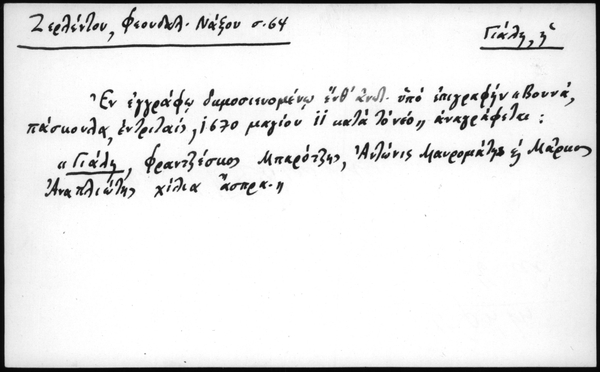 Ζερλέντου, Φεουδαλ. Νάξου σ. 64
Γιάλη, ἡ
Ἐν ἐγγράφῳ δημοσιευομένῳ ἔνθ' ἀνωτ. ὑπό ἐπιγραφήν «Βουνά,
πάσκουλα, ἐντριταίς, 1670 μαγίου 11 κατά τό νέο» ἀναγράφεται:
«Γιάλη, Φραντζέσκος Μπαρότζης, Ἀντώνις Μαυρομάτης ἐς Μάρκος
Ἀναπλιώτης χίλια ἄσπρα.»